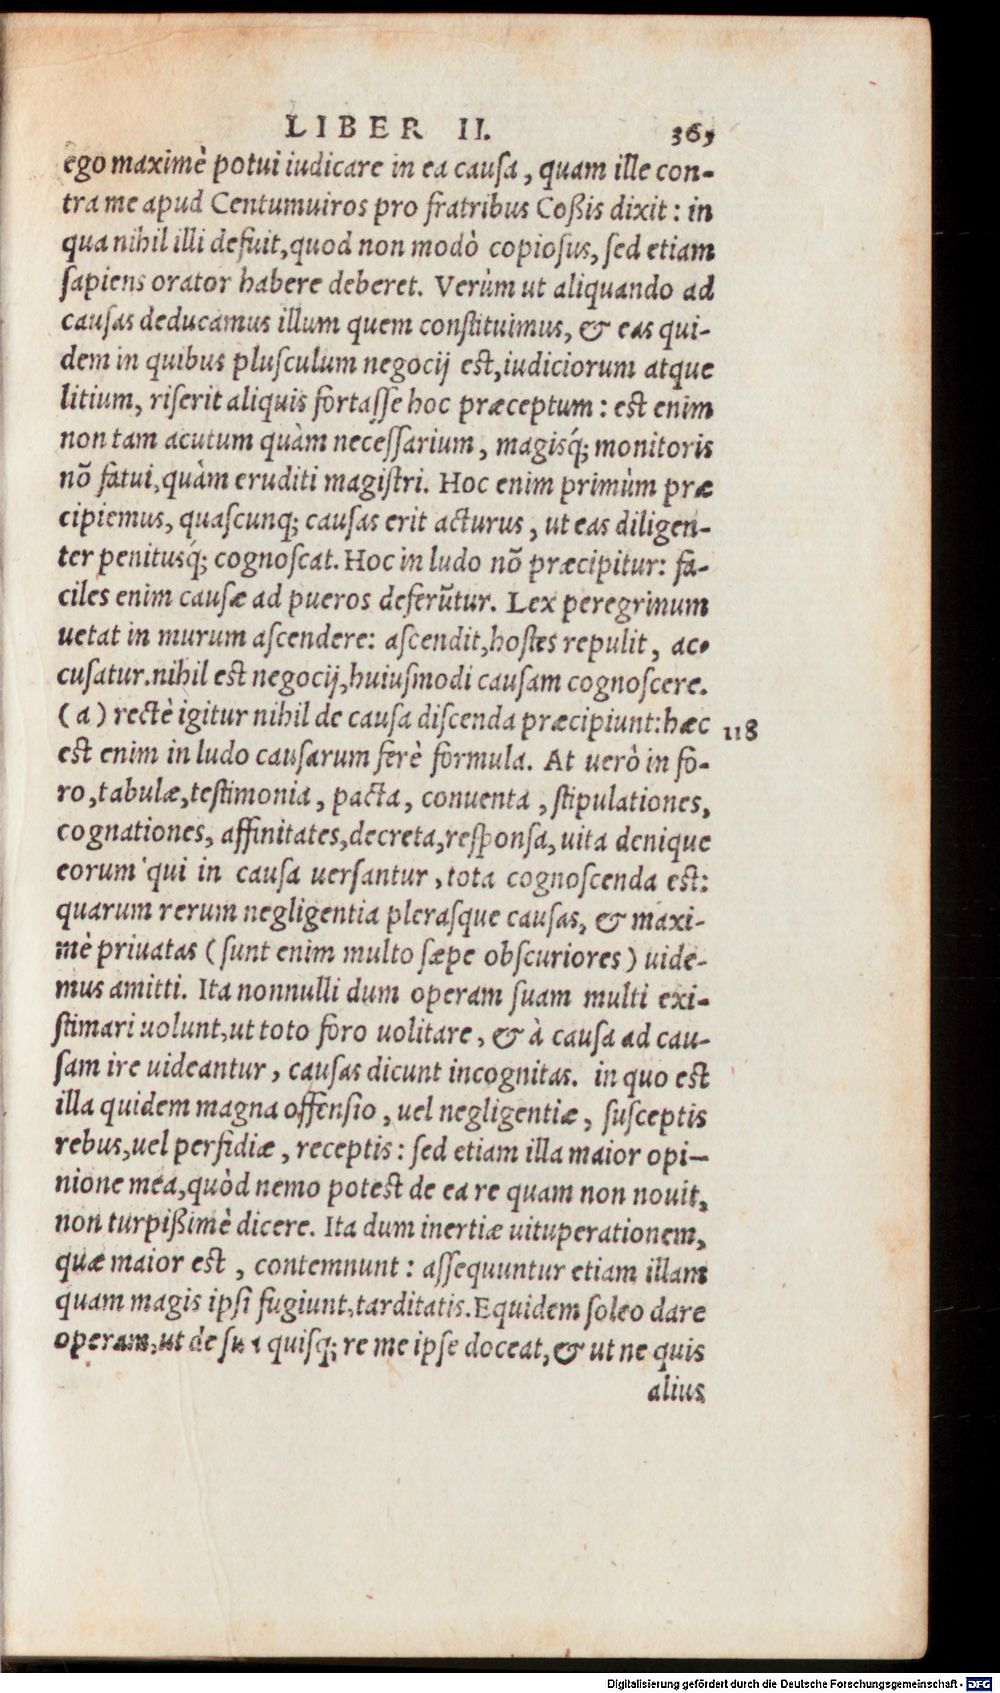 LIBER II. 365
ego maximè potui iudicare in ea causa, quam ille con-
tra me apud Centumuiros pro fratribus Coßis dixit: in
qua nihil illi defuit, quod non modò copiosus, sed etiam
sapiens orator habere deberet. Verùm ut aliquando ad
causas deducamus illum quem constituimus, & eas qui-
dem in quibus plusculum negocij est, iudiciorum atque
litium, riserit aliquis fortasse hoc præceptum: est enim
non tam acutum quàm necessarium, magisq́; monitoris
nõ fatui, quàm eruditi magistri. Hoc enim primùm præ
cipiemus, quascunq; causas erit acturus, ut eas diligen-
ter penitusq́; cognoscat. Hoc in ludo nõ præcipitur: fa-
ciles enim causæ ad pueros deferũtur. Lex peregrinum
uetat in murum ascendere: ascendit, hostes repulit, ac-
cusatur. nihil est negocij, huiusmodi causam cognoscere.
(a) rectè igitur nihil de causa discenda præcipiunt: hæc 118
est enim in ludo causarum ferè formula. At uerò in fo-
ro, tabulæ, testimonia, pacta, conuenta, stipulationes,
cognationes, affinitates, decreta, responsa, uita denique
eorum qui in causa uersantur, tota cognoscenda est:
quarum rerum negligentia plerasque causas, & maxi-
mè priuatas (sunt enim multo sæpe obscuriores) uide-
mus amitti. Ita nonnulli dum operam suam multi exi-
stimari uolunt, ut toto foro uolitare, & à causa ad cau-
sam ire uideantur, causas dicunt incognitas. in quo est
illa quidem magna offensio, uel negligentiæ, susceptis
rebus, uel perfidiæ, receptis: sed etiam illa maior opi-
nione mea, quòd nemo potest de ea re quam non nouit,
non turpißimè dicere. Ita dum inertiæ uituperationem,
quæ maior est, contemnunt: assequuntur etiam illam
quam magis ipsi fugiunt, tarditatis. Equidem soleo dare
operam, ut de sua quisq; re me ipse doceat, & ut ne quis
alius
Digitalisierung gefördert durch die Deutsche Forschungsgemeinschaft - DFG